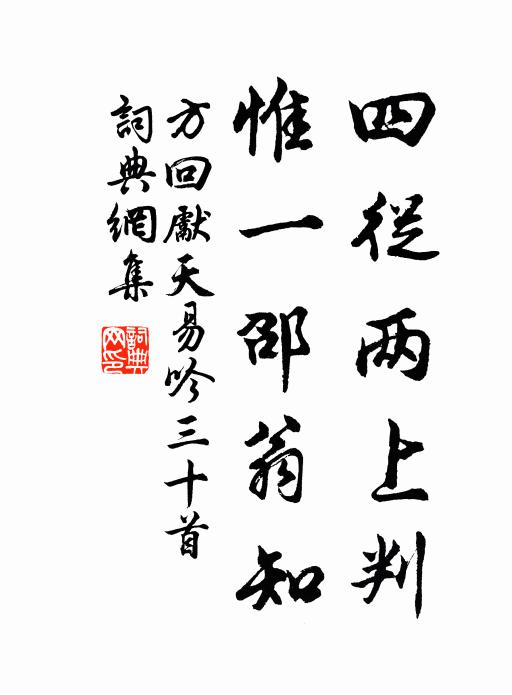 四從两上判
惟一邵翁知
方回獻天易吟三十首
詞典網集
詞典网印